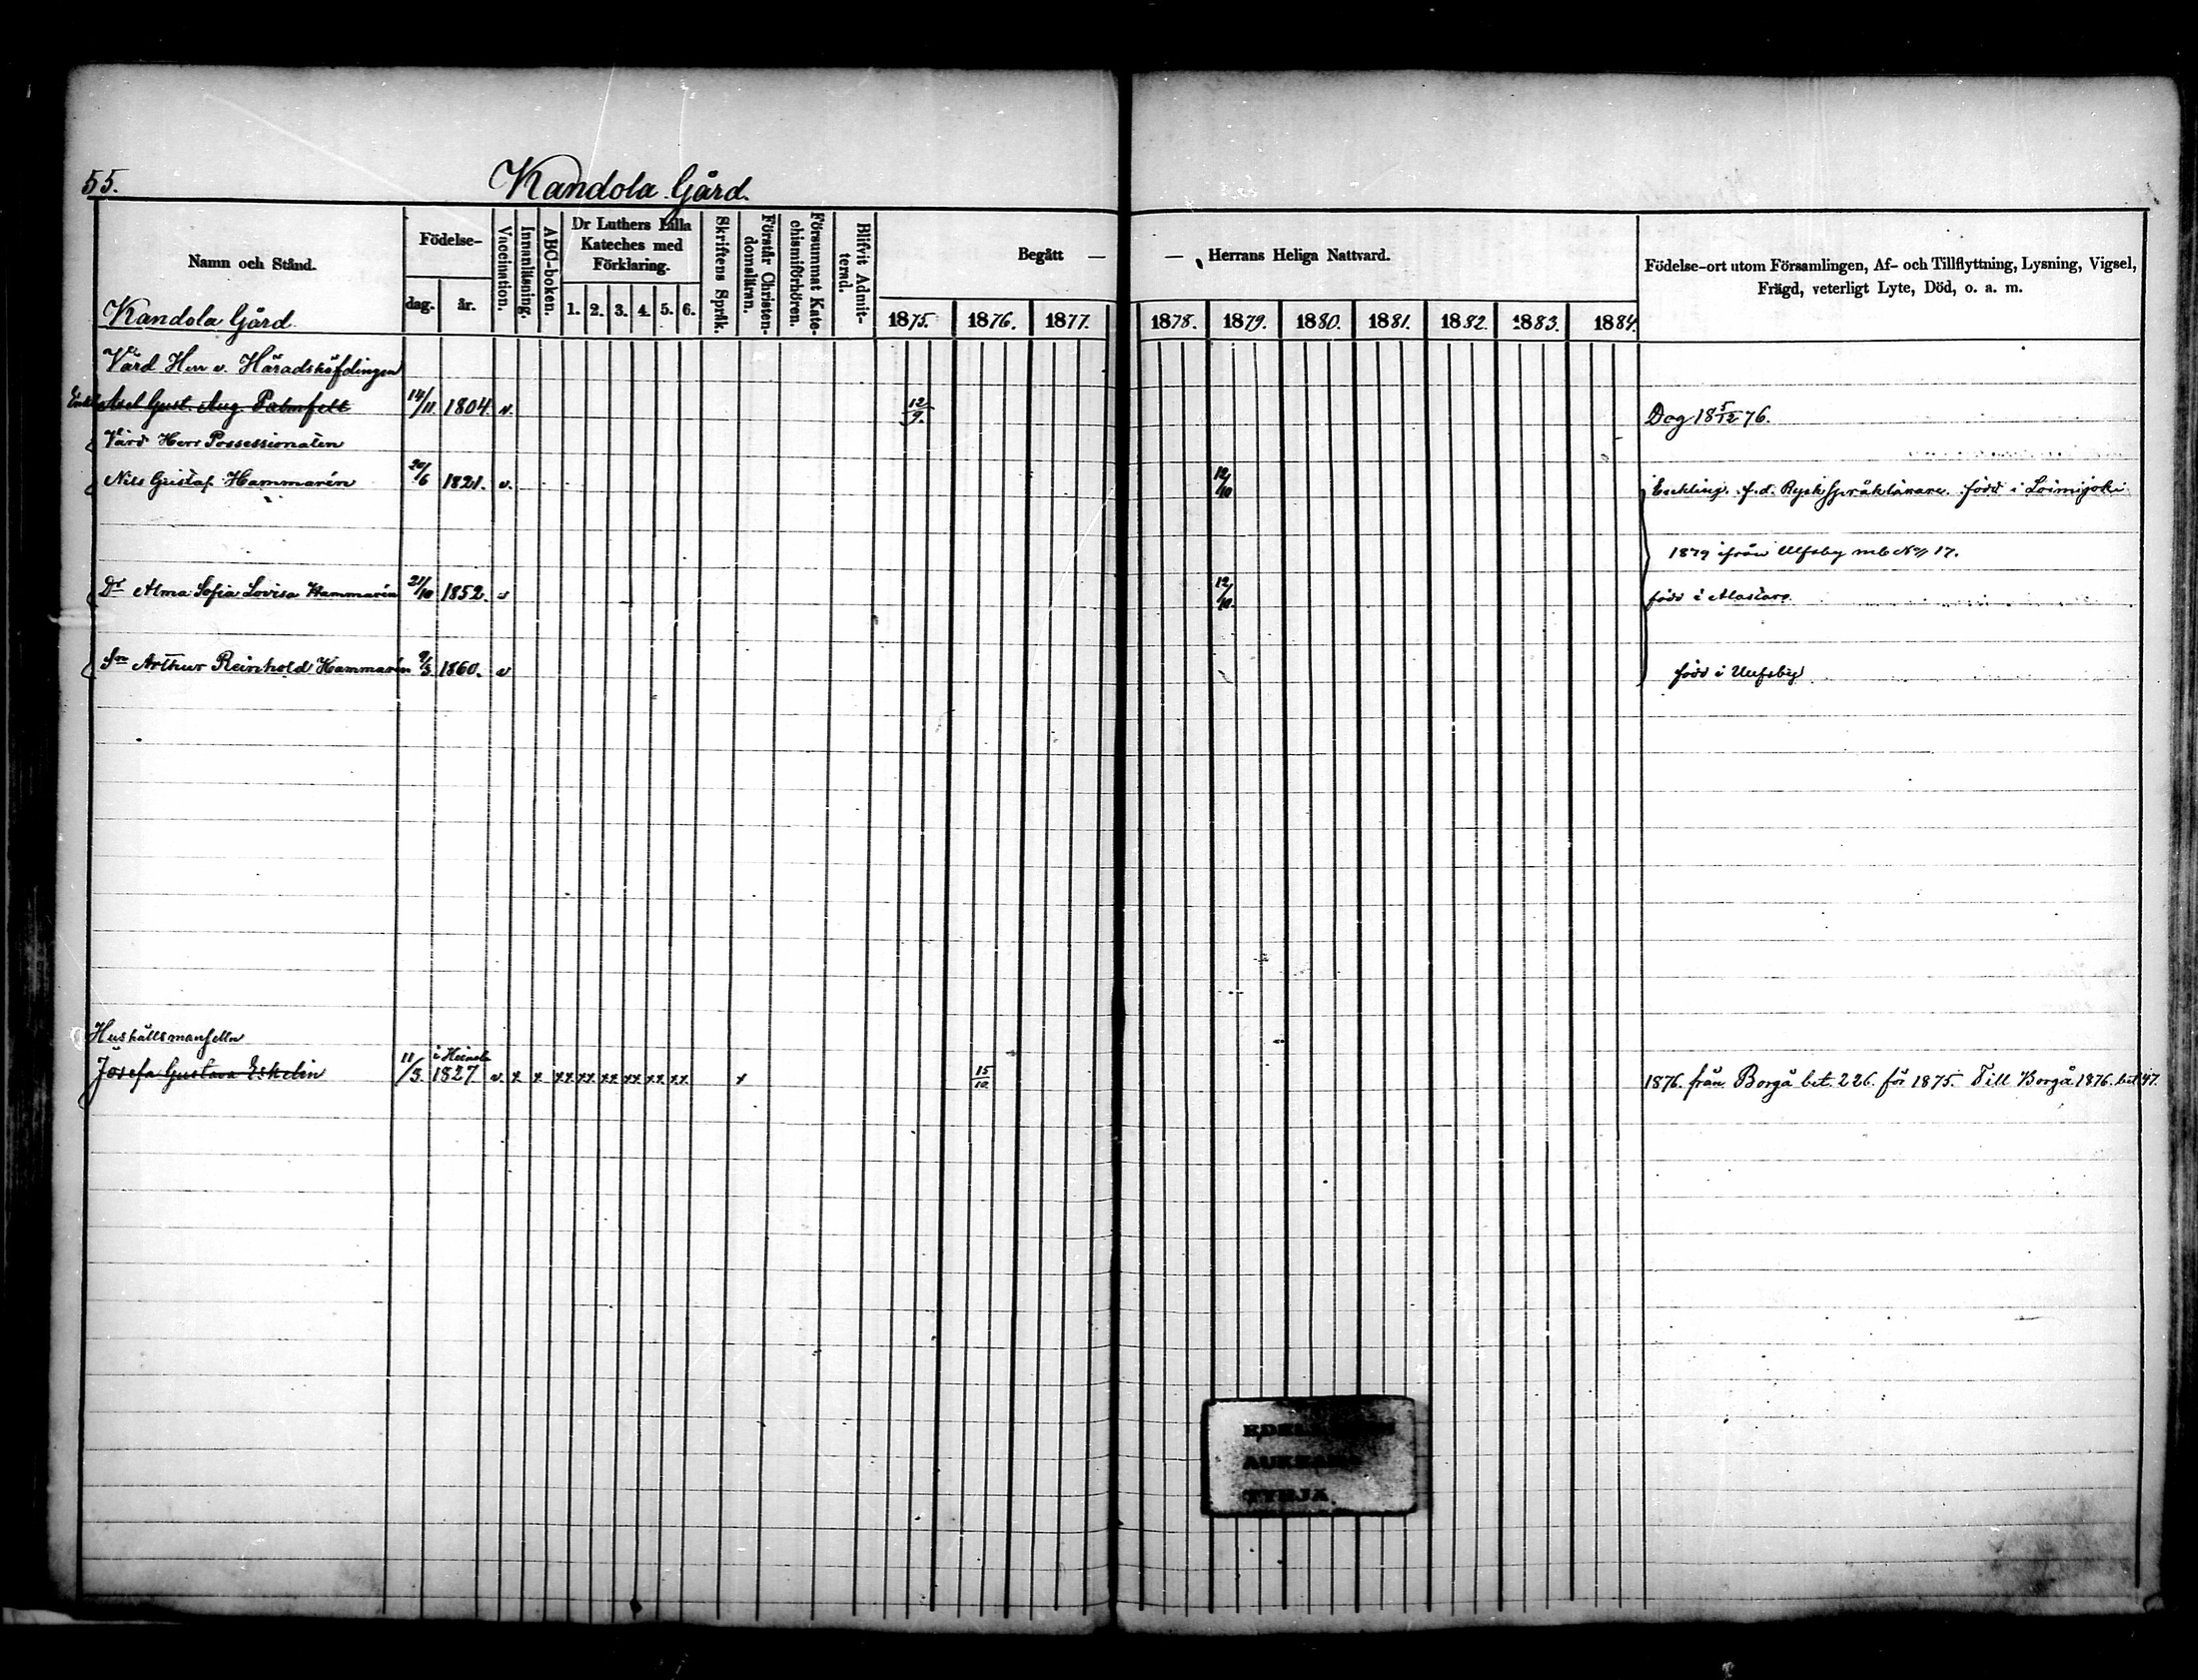 55.
Kandola Gård.
Namn och Stånd.
Födelse-
dag.
år.
Vaccination.
Innanläsning.
ABC-boken.
Dr Luthers Lilla Kateches med Förklaring.
1. 2. 3. 4. 5. 6.
Skriftens Språk.
Förstår Christen-domsläran.
Försummat Kate-chismiförhören.
Blifvit Admit-terad.
Begått —
— Herrans Heliga Nattvard.
1875. 1876. 1877. 1878. 1879. 1880. 1881. 1882. 1883. 1884.
Födelse-ort utom Församlingen, Af- och Tillflyttning, Lysning, Vigsel,
Frägd, veterligt Lyte, Död, o. a. m.
Kandola Gård.
Värd Herr v. Häradshöfdingen
Axel Gust. Aug. Palmfelt 14/11 1804 v. 12/9. Dog 18 5/12 76.
Värd Herr Possessionaten
Nils Gustaf Hammarén 20/6 1821. v. 12/10 Enkling. f.d. Rysk språklärare. född i Loimijoki
1879 ifrån Ulfsby mb No 17.
Dr Alma Sofia Lovisa Hammarén 21/10 1852. v 12/10. född i Alastaro.
Sn Arthur Reinhold Hammarén 9/3 1860. v född i Ulfsby
Hushållsmanselln
Josefa Gustava Eskelin 11/3. i Heinola 1827 v. x x xx xx xx xx xx xx x 15/10 1876. från Borgå bet. 226. för 1875. Till Borgå 1876. bet 47.